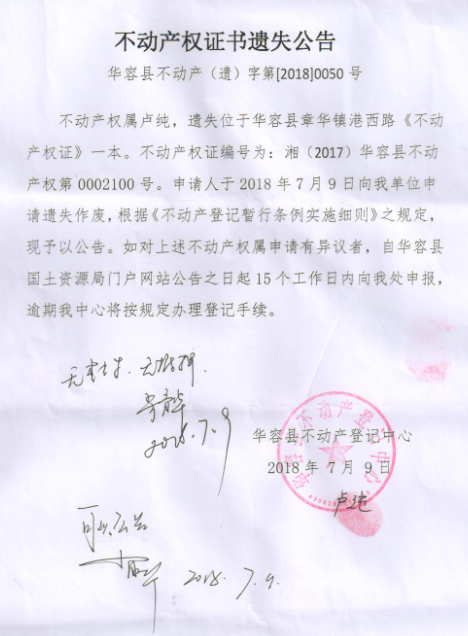 不动产权证书遗失公告
华容县不动产（遗）字第[2018]0050 号
不动产权属卢纯，遗失位于华容县章华镇港西路《不动
产权证》一本。不动产权证编号为：湘（2017）华容县不动
产权第 0002100 号。申请人于 2018 年 7 月 9 日向我单位申
请遗失作废，根据《不动产登记暂行条例实施细则》之规定，
现予以公告。如对上述不动产权属申请有异议者，自华容县
国土资源局门户网站公告之日起 15 个工作日内向我处申报，
逾期我中心将按规定办理登记手续。
2018.7.9
华容县不动产登记中心
2018 年 7 月 9 日
卢纯
2018. 7.9.